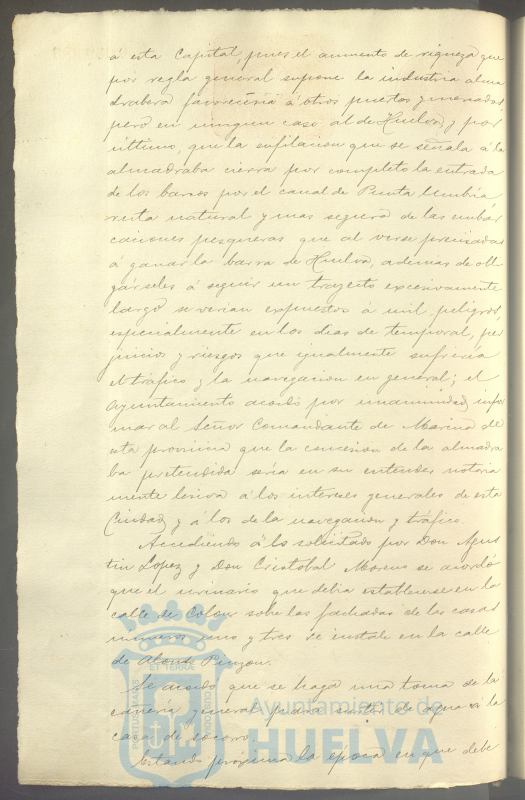 á esta Capital, pues el aumento de riqueza que
por regla general supone la industria alma
drabera favoreceria á otros puertos y mercados
pero en ninguen caso al de Huelva, y por
último, que la enfilacion que se señala á la
almadraba cierra por completo la entrada
de los barcos por el canal de Punta Umbría
ruta natural y mas segura de las embar
caciones pesqueras que al verse precisadas
á ganar la barra de Huelva, ademas de obli
garseles á seguir un trayecto excesivamente
largo se verian expuestos á mil peligros,
especialmente en los dias de temporal, per
juicios y riesgos que igualmente sufriria
el tráfico y la navegacion en general; el
Ayuntamiento acordó por unanimidad, infor
mar al Señor Comandante de Marina de
esta provincia que la concesion de la almadra
ba pretendida seria en su entender notaria
mente lesiva á los intereses generales de esta
Ciudad y á los de la navegacion y tráfico.
Accediendo á lo solicitado por Don Agus
tin Lopez y Don Cristobal Moreno se acordó
que el urinario que debia establecerse en la
calle de Colon sobre las fachadas de las casas
numeros uno y tres se instale en la calle
de Alonso Pinzon.
Se acordó que se haga una toma de la
cañeria general para surtir de agua á la
casa de socorro.
Estando próxima la época en que debe
PORTUS MARIS ET TERRE CUSTODIA
Ayuntamiento de
HUELVA